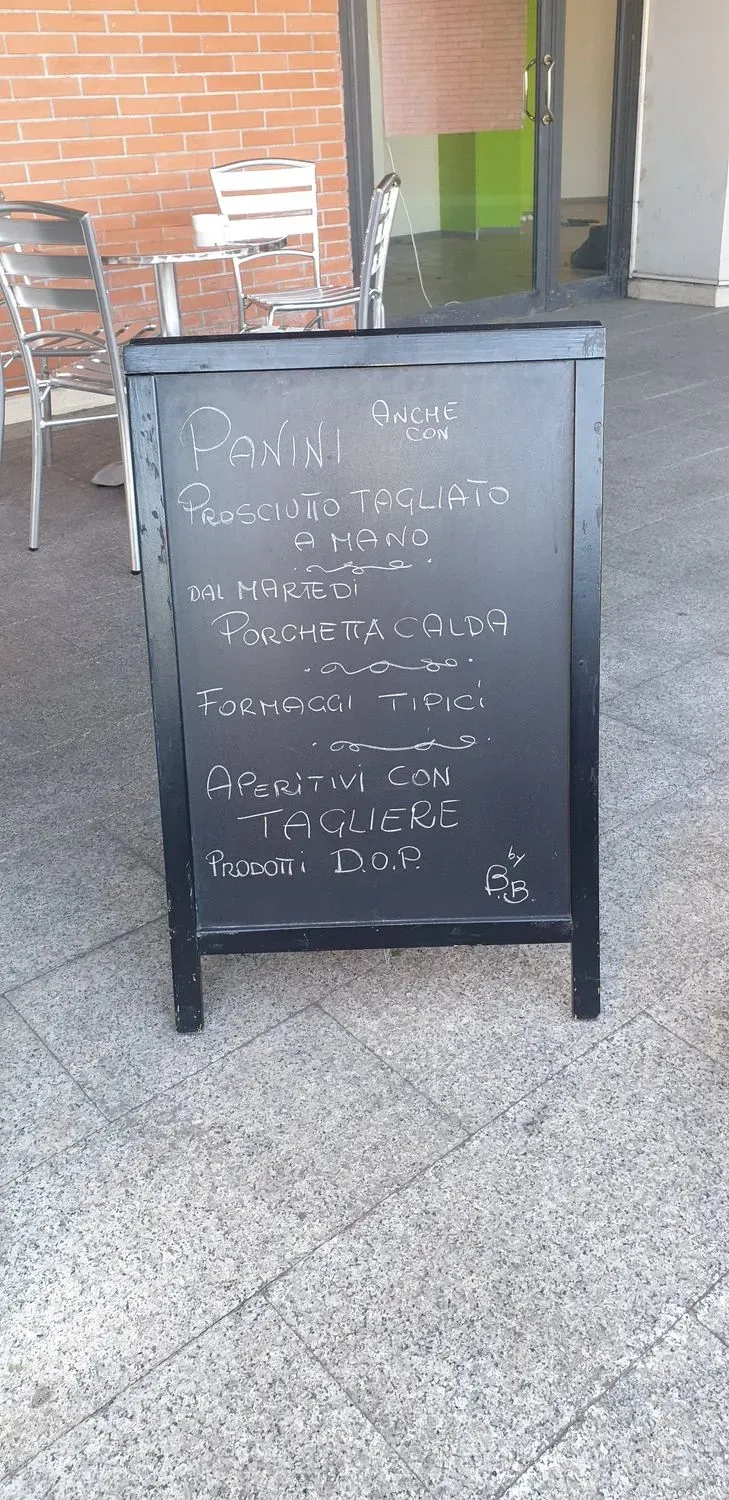 PANINI ANCHE
CON
PROSCIUTTO TAGLIATO
A MANO
DAL MARTEDÌ
PORCHETTA CALDA
FORMAGGI TIPICI
APERITIVI CON
TAGLIERE
PRODOTTI D.O.P.
by
B.B.